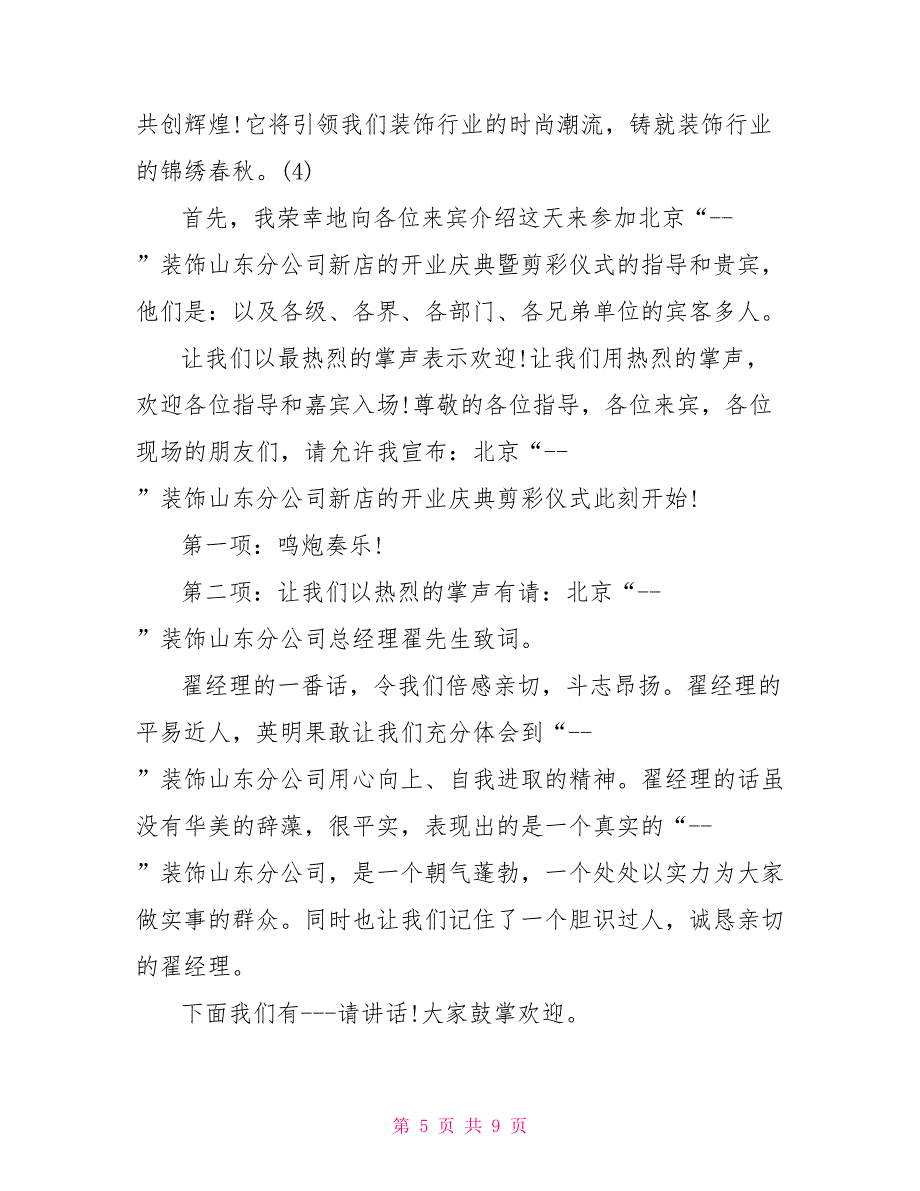 共创辉煌!它将引领我们装饰行业的时尚潮流，铸就装饰行业
的锦绣春秋。(4)
首先，我荣幸地向各位来宾介绍这天来参加北京“--
”装饰山东分公司新店的开业庆典暨剪彩仪式的指导和贵宾，
他们是：以及各级、各界、各部门、各兄弟单位的宾客多人。
让我们以最热烈的掌声表示欢迎!让我们用热烈的掌声，
欢迎各位指导和嘉宾入场!尊敬的各位指导，各位来宾，各位
现场的朋友们，请允许我宣布：北京“--
”装饰山东分公司新店的开业庆典剪彩仪式此刻开始!
第一项：鸣炮奏乐!
第二项：让我们以热烈的掌声有请：北京“--
”装饰山东分公司总经理翟先生致词。
翟经理的一番话，令我们倍感亲切，斗志昂扬。翟经理的
平易近人，英明果敢让我们充分体会到“--
”装饰山东分公司用心向上、自我进取的精神。翟经理的话虽
没有华美的辞藻，很平实，表现出的是一个真实的“--
”装饰山东分公司，是一个朝气蓬勃，一个处处以实力为大家
做实事的群众。同时也让我们记住了一个胆识过人，诚恳亲切
的翟经理。
下面我们有---请讲话!大家鼓掌欢迎。
第 5 页 共 9 页